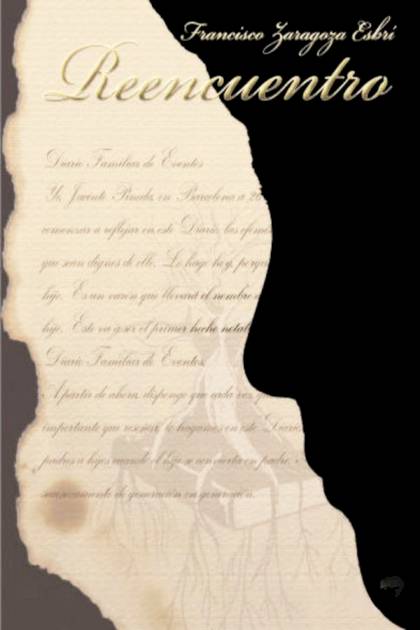 Francisco Zaragoza Esbrí
Reencuentro
Diario Familiar de Eventos
Yo, Jacinto Pineda, en Barcelona a 26
comenzar a reflejar en este Diario, las
que sean dignos de ello. Lo hago hoy, porque
hijo. Es un varón que llevará el nombre
hijo. Este va a ser el primer hecho notable
Diario Familiar de Eventos.
A partir de ahora, dispongo que cada vez
importante que reseñar, lo hagamos en este Diario,
padres a hijos cuando el hijo se convierta en padre,
sucesivamente de generación en generación.